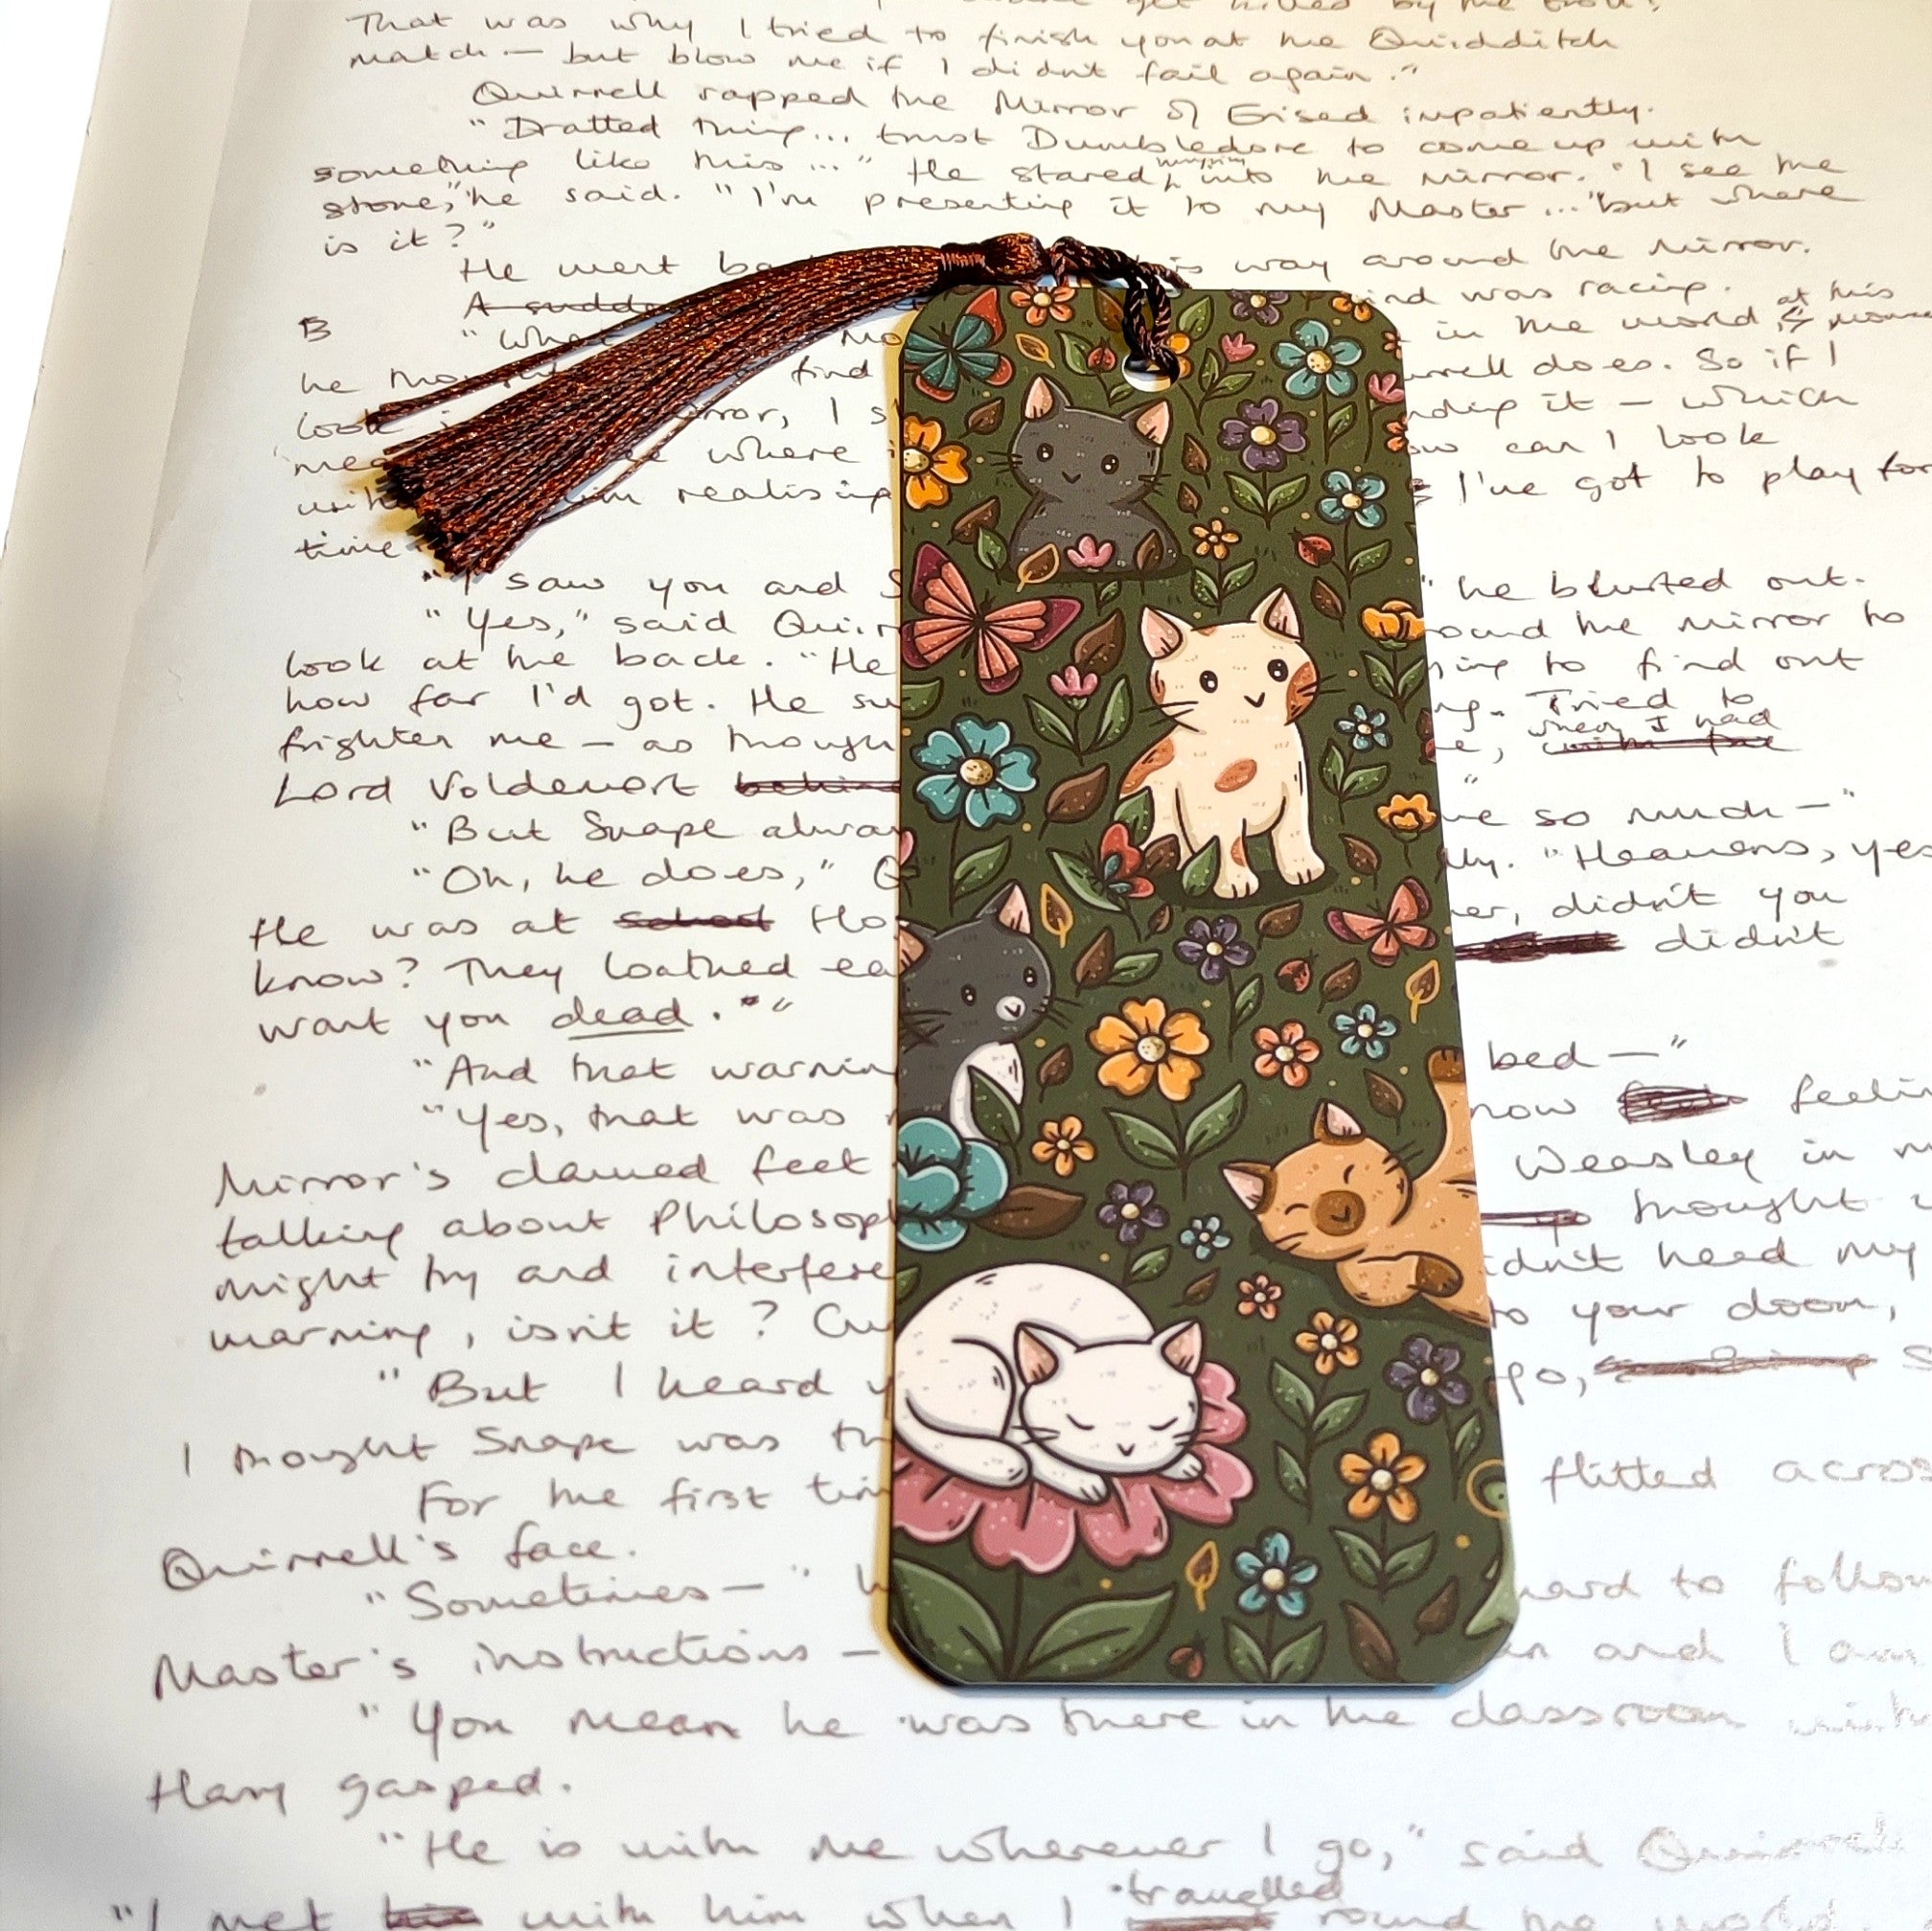 That was why I tried to finish you at the Quidditch
match — but blow me if I didn't fail again."
Quirrell rapped the Mirror of Erised impatiently.
"Dratted thing... trust Dumbledore to come up with
something like this..." He stared into the mirror. "I see the
stone," he said. "I'm presenting it to my Master... but where
is it?"
He went ba is way around the mirror.
A sudde ind was racing.
B "What in the world, at this
he thou find rrell does. So if I
look rror, I s nding it — which
mea where i ow can I look
with him realising I've got to play for
time.
"I saw you and S " he blurted out.
"Yes," said Quir ound the mirror to
look at the back. "He ing to find out
how far I'd got. He su ng. Tried to
frighten me — as though e, when I had
Lord Voldemort behind "
"But Snape alway me so much —"
"Oh, he does," Q lly. "Heavens, yes
He was at school Ho er, didn't you
know? They loathed ea didn't
want you dead."
"And that warnin bed —"
"Yes, that was now feelin
Mirror's clawed feet Weasley in m
talking about Philosop thought
might try and interfere idn't heed my
warning, isn't it? Cu to your doom,
"But I heard y go, S
I thought Snape was th
For the first tim flitted across
Quirrell's face.
"Sometimes —" h hard to follow
Master's instructions — and I am
"You mean he was there in the classroom with
Harry gasped.
"He is with me wherever I go," said Quirrell
"I met him with him when I travelled round the world.